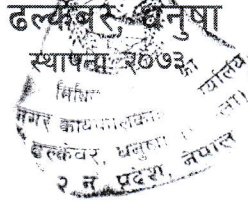 ढल्केबर, धनुषा
स्थापना २०७३
मिथि
नगर कार्यपालिका
का
यालय
ढल्केवर, धनुषा
२ नं प्रदेश, नेपाल